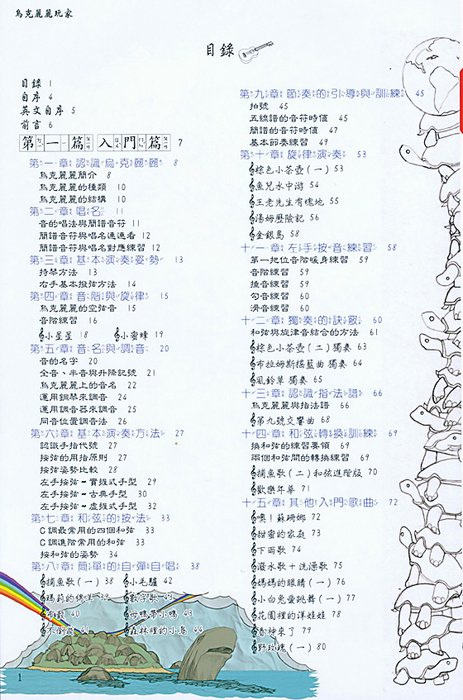 烏克麗麗玩家
目錄
目錄 1
自序 4
英文自序 5
前言 6
第一篇 入門篇 7
第一章 認識烏克麗麗 8
烏克麗麗簡介 8
烏克麗麗的種類 10
烏克麗麗的結構 10
第二章 唱名 11
音的唱法與簡譜音符 11
簡譜音符與唱名連連看 12
簡譜音符與唱名對應練習 12
第三章 基本演奏姿勢 13
持琴方法 13
右手基本撥弦方法 14
第四章 音階與旋律 15
烏克麗麗的空弦音 15
音階練習 16
小星星 18 小蜜蜂 19
第五章 音名與調音 20
音的名字 20
全音、半音與升降記號 21
烏克麗麗上的音名 22
運用鋼琴來調音 24
運用調音器來調音 25
同音位置調音法 26
第六章 基本演奏方法 27
認識手指代號 27
按弦的用指原則 27
按弦姿勢比較 28
左手按弦-實按式手型 29
左手按弦-古典手型 30
左手按弦-虛按式手型 32
第七章 和弦的按法 33
C調最常用的四個和弦 33
C調進階常用的和弦 33
按和弦的姿勢 34
第八章 簡單的自彈自唱 38
捕魚歌(一) 38 小毛驢 42
瑪莉的綿羊 數字歌 43
母鴨帶小鴨 43
森林裡的小鳥 44
第九章 節奏的引導與訓練 45
拍號 45
五線譜的音符時值 45
簡譜的音符時值 47
基本節奏練習 49
第十章 旋律演奏 53
棕色小茶壺(一) 53
魚兒水中游 54
王老先生有塊地 55
湯姆歷險記 56
金銀島 58
十一章 左手按音練習 58
第一把位音階暖身練習 59
音階練習 59
搥音練習 59
勾音練習 60
滑音練習 60
十二章 獨奏的訣竅 60
和弦與旋律音結合的方法 61
棕色小茶壺(二)獨奏 63
布拉姆斯搖籃曲 獨奏 64
風鈴草 獨奏 65
十三章 認識指法譜 66
烏克麗麗與指法譜 66
第九號交響曲 68
十四章 和弦轉換訓練 69
換和弦的練習要領 69
兩個和弦間的轉換練習 69
捕魚歌(二)和弦進階版 70
歡樂年華 71
十五章 其他入門歌曲 72
噢!蘇珊娜 72
甜蜜的家庭 73
下雨歌 74
潑水歌+洗澡歌 75
媽媽的眼睛(一) 76
小白兔愛跳舞(一) 77
花園裡的洋娃娃 78
春神來了 79
野玫瑰(一) 80
1